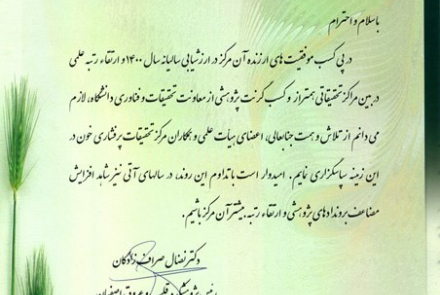 باسلام و احترام
در پی کسب موفقیت های ارزنده آن مرکز در ارزشیابی سالیانه سال ۱۴۰۰ و ارتقاء رتبه علمی
در بین مراکز تحقیقاتی همتراز و کسب گرنت پژوهشی از معاونت تحقیقات و فناوری دانشگاه، لازم
می دانم از تلاش و همت جنابعالی، اعضای هیأت علمی و همکاران مرکز تحقیقات پرفشاری خون در
این زمینه سپاسگزاری نمایم. امیدوار است با تداوم این روند، در سالهای آتی نیز شاهد افزایش
مضاعف بروندادهای پژوهشی و ارتقاء رتبه بیشتر آن مرکز باشیم.
دکتر نضال صراف زادگان
رئیس پژوهشکده قلب و عروق اصفهان